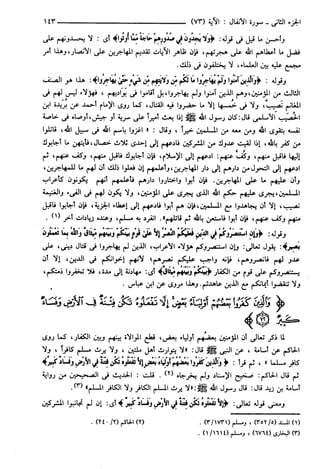 الجزء الثاني - سورة الأنفال : الآية (٧٣) ١٤٣
وأحسن ما قيل في قوله: ﴿ولا يجدون في صدورهم حاجة مما أوتوا﴾ أي: لا يحسدونهم على
فضل ما أعطاهم الله على هجرتهم، فإن ظاهر الآيات تقديم المهاجرين على الأنصار، وهذا أمر
مجمع عليه بين العلماء، لا يختلفون في ذلك.
وقوله: ﴿والذين آمنوا ولم يهاجروا ما لكم من ولايتهم من شيء حتى يهاجروا﴾: هذا هو الصنف
الثالث من المؤمنين، وهم الذين آمنوا ولم يهاجروا، بل أقاموا في بواديهم، فهؤلاء ليس لهم في
المغانم نصيب، ولا في خمسها إلا ما حضروا فيه القتال، كما روى الإمام أحمد عن بريدة ابن
الحصيب الأسلمي قال: كان رسول الله ﷺ إذا بعث أميراً على سرية أو جيش، أوصاه في خاصة
نفسه بتقوى الله ومن معه من المسلمين خيراً، وقال: «اغزوا باسم الله في سبيل الله، قاتلوا
من كفر بالله، إذا لقيت عدوك من المشركين فادعهم إلى إحدى ثلاث خصال، فأيتهن ما أجابوك
إليها فاقبل منهم، وكف عنهم: ادعهم إلى الإسلام، فإن أجابوك فاقبل منهم، وكف عنهم، ثم
ادعهم إلى التحول من دارهم إلى دار المهاجرين، وأعلمهم إن فعلوا ذلك أن لهم ما للمهاجرين،
وأن عليهم ما على المهاجرين. فإن أبوا واختاروا دارهم فأعلمهم أنهم يكونون كأعراب
المسلمين، يجري عليهم حكم الله الذي يجري على المؤمنين، ولا يكون لهم في الفيء والغنيمة
نصيب، إلا أن يجاهدوا مع المسلمين، فإن هم أبوا فادعهم إلى إعطاء الجزية، فإن أجابوا فاقبل
منهم وكف عنهم، فإن أبوا فاستعن بالله ثم قاتلهم». انفرد به مسلم، وعنده زيادات أخر (١).
وقوله: ﴿وإن استنصروكم في الدين فعليكم النصر إلا على قوم بينكم وبينهم ميثاق والله بما تعملون
بصير﴾: يقول تعالى: وإن استنصروكم هؤلاء الأعراب، الذين لم يهاجروا في قتال ديني، على
عدو لهم فانصروهم، فإنه واجب عليكم نصرهم؛ لأنهم إخوانكم في الدين، إلا أن
يستنصروكم على قوم من الكفار ﴿بينكم وبينهم ميثاق﴾ أي: مهادنة إلى مدة، فلا تخفروا ذمتكم،
ولا تنقضوا أيمانكم مع الذين عاهدتم. وهذا مروي عن ابن عباس.
﴿والذين كفروا بعضهم أولياء بعض إلا تفعلوه تكن فتنة في الأرض وفساد
كبير﴾ (٧٣)
لما ذكر تعالى أن المؤمنين بعضهم أولياء بعض، قطع الموالاة بينهم وبين الكفار، كما روى
الحاكم عن أسامة، عن النبي ﷺ قال: «لا يتوارث أهل ملتين، ولا يرث مسلم كافراً، ولا
كافر مسلماً»، ثم قرأ: ﴿والذين كفروا بعضهم أولياء بعض إلا تفعلوه تكن فتنة في الأرض وفساد كبير﴾
ثم قال الحاكم: صحيح الإسناد ولم يخرجاه (٢). قلت: الحديث في الصحيحين من رواية
أسامة بن زيد قال: قال رسول الله ﷺ: «لا يرث المسلم الكافر ولا الكافر المسلم» (٣).
ومعنى قوله تعالى: ﴿إلا تفعلوه تكن فتنة في الأرض وفساد كبير﴾ أي: إن لم تجانبوا المشركين
(١) المسند (٣٥٢/٥)، ومسلم (١٧٣١/٣). (٢) الحاكم (٢٤٠/٢).
(٣) البخاري (٦٧٦٤)، ومسلم (١٦١٤/١).